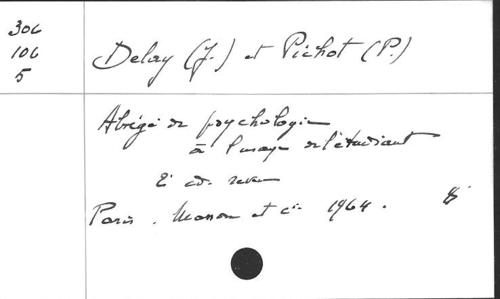 306
106
5
Delay (J.) et Pichot (P.)
Abrégé de psychologie
à l'usage de l'étudiant
2e éd. revue
Paris. Masson et cie 1964.